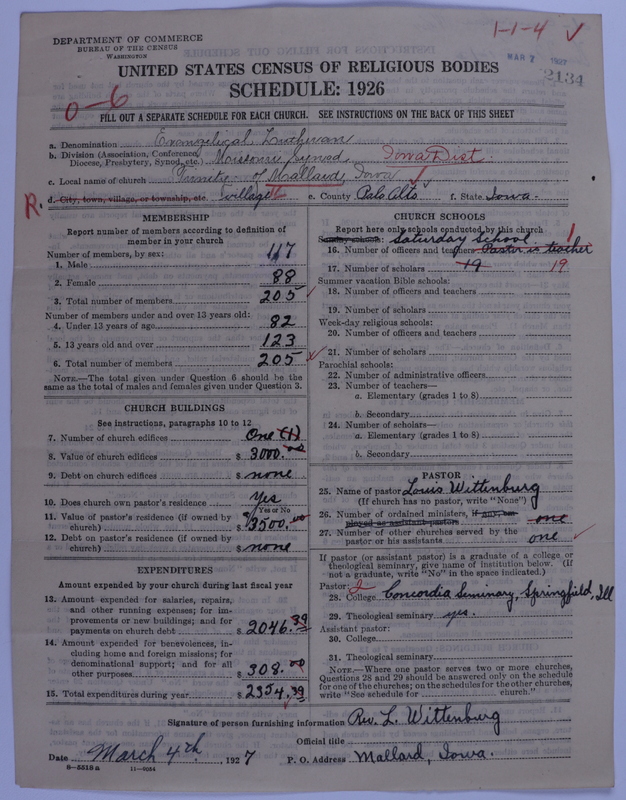 DEPARTMENT OF COMMERCE
BUREAU OF THE CENSUS
WASHINGTON
1-1-4
MAR 7 1927
2134
UNITED STATES CENSUS OF RELIGIOUS BODIES
SCHEDULE: 1926
0-6
FILL OUT A SEPARATE SCHEDULE FOR EACH CHURCH. SEE INSTRUCTIONS ON THE BACK OF THIS SHEET
a. Denomination Evangelical Lutheran
b. Division (Association, Conference, Diocese, Presbytery, Synod, etc.) Missouri Synod, Iowa Dist.
c. Local name of church of Mallard, Iowa
R.
d. City, town, village, or township, etc. village e. County Palo Alto f. State Iowa.
MEMBERSHIP
Report number of members according to definition of member in your church
Number of members, by sex:
1. Male 117
2. Female 88
3. Total number of members 205
Number of members under and over 13 years old:
4. Under 13 years of age 82
5. 13 years old and over 123
6. Total number of members 205
NOTE.—The total given under Question 6 should be the same as the total of males and females given under Question 3.
CHURCH BUILDINGS
See instructions, paragraphs 10 to 12
7. Number of church edifices One (1)
8. Value of church edifices $ 3000.00
9. Debt on church edifices $ none
10. Does church own pastor's residence yes
Yes or No
11. Value of pastor's residence (if owned by church) $ 3500.00
12. Debt on pastor's residence (if owned by church) $ none
EXPENDITURES
Amount expended by your church during last fiscal year
13. Amount expended for salaries, repairs, and other running expenses; for improvements or new buildings; and for payments on church debt $ 2046.39
14. Amount expended for benevolences, including home and foreign missions; for denominational support; and for all other purposes $ 308.00
15. Total expenditures during year $ 2354.39
CHURCH SCHOOLS
Report here only schools conducted by this church
Sunday schools: Saturday School
16. Number of officers and teachers Pastor is teacher 1
17. Number of scholars 19 19
Summer vacation Bible schools:
18. Number of officers and teachers
19. Number of scholars
Week-day religious schools:
20. Number of officers and teachers
21. Number of scholars
Parochial schools:
22. Number of administrative officers
23. Number of teachers—
a. Elementary (grades 1 to 8)
b. Secondary
24. Number of scholars—
a. Elementary (grades 1 to 8)
b. Secondary
PASTOR
25. Name of pastor Louis Wittenburg
(If church has no pastor, write "None")
26. Number of ordained ministers, if any, employed as assistant pastors one
27. Number of other churches served by the pastor or his assistants one
If pastor (or assistant pastor) is a graduate of a college or theological seminary, give name of institution below. (If not a graduate, write "No" in the space indicated.)
Pastor:
28. College Concordia Seminary, Springfield, Ill
29. Theological seminary yes.
Assistant pastor:
30. College
31. Theological seminary
NOTE.—Where one pastor serves two or more churches, Questions 28 and 29 should be answered only on the schedule for one of the churches; on the schedules for the other churches, write "See schedule for church."
Signature of person furnishing information Rev. L. Wittenburg
Official title
Date March 4th 1927 P. O. Address Mallard, Iowa.
8-5515a 11-9054